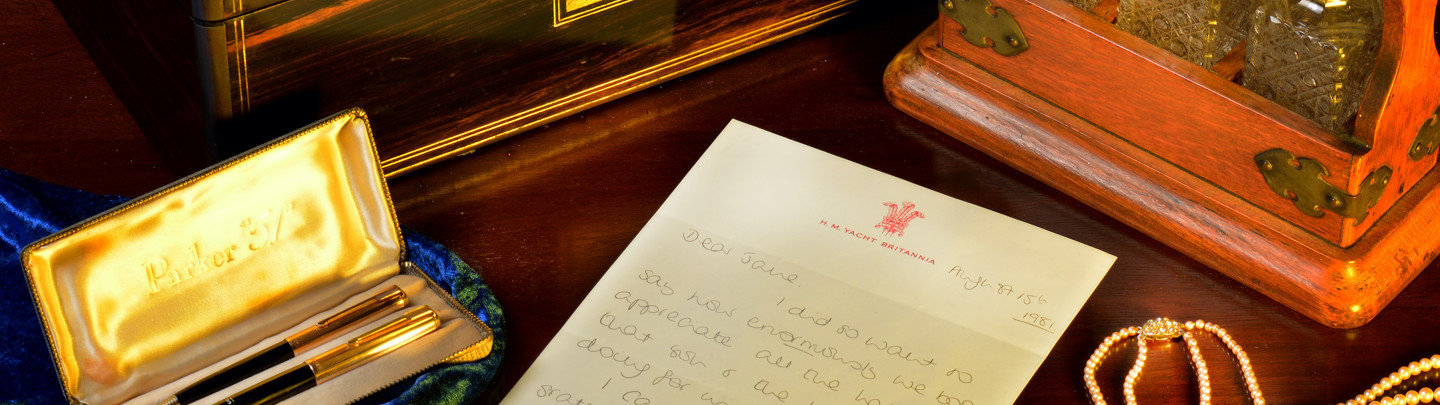 Parker "51"
H.M. YACHT BRITANNIA
August 15th
1981.
Dear Jane.
I did so want to
say how enormously we both
appreciate all the
that you & the
doing for
I